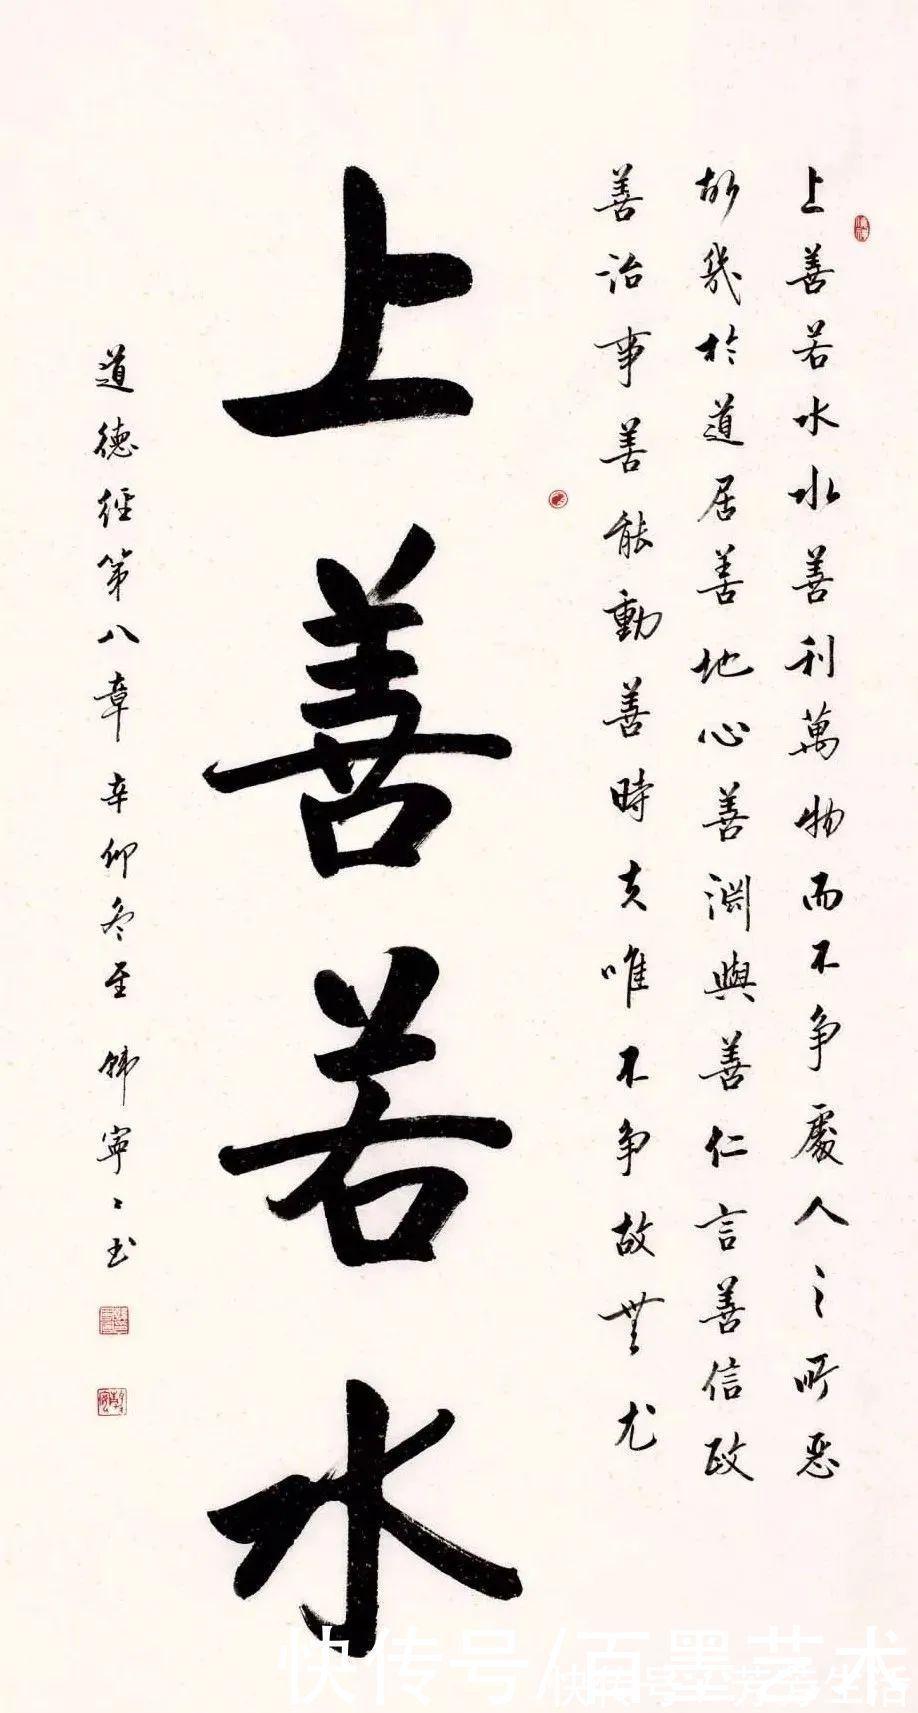 上善若水水善利萬物而不争處人之所惡
故幾於道居善地心善淵與善仁言善信政
善治事善能動善時夫唯不争故無尤
上善若水
道德經第八章 辛卯冬至 韩寧寧书
快传号/百墨艺术
快传号/芳芳生活